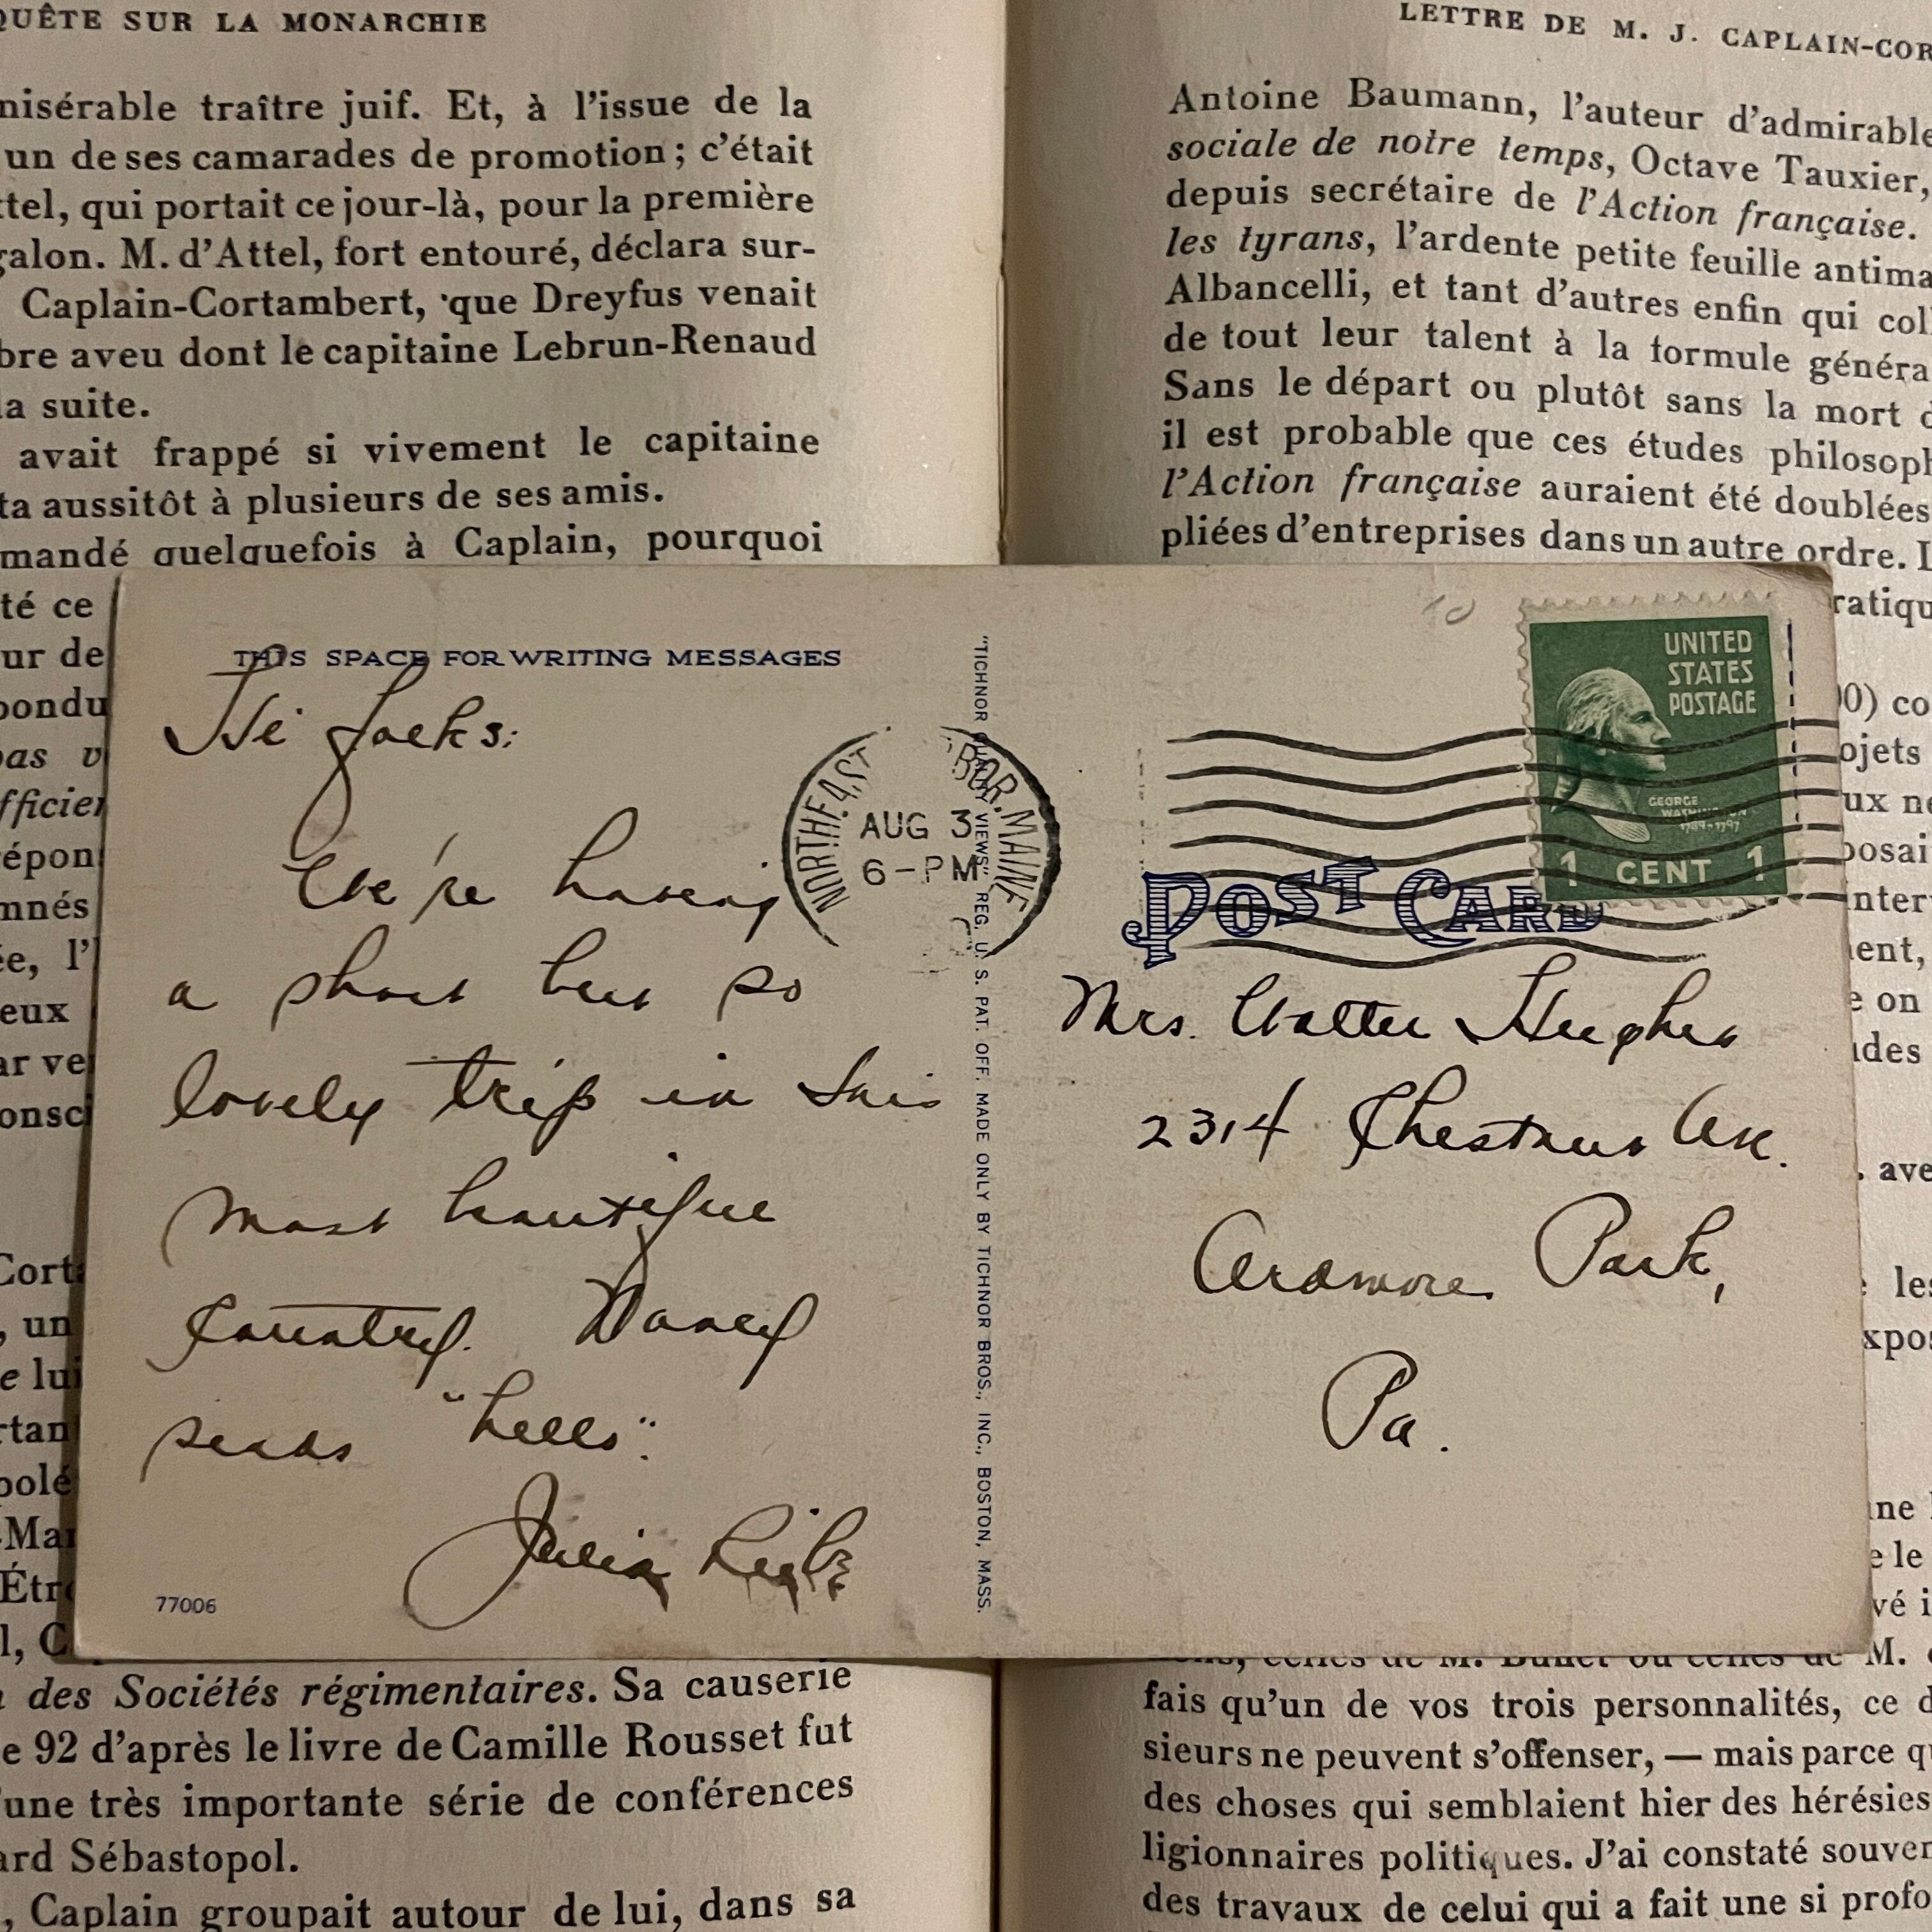 QUÊTE SUR LA MONARCHIE
misérable traître juif. Et, à l'issue de la
un de ses camarades de promotion ; c'était
ttel, qui portait ce jour-là, pour la première
galon. M. d'Attel, fort entouré, déclara sur-
Caplain-Cortambert, que Dreyfus venait
bre aveu dont le capitaine Lebrun-Renaud
la suite.
avait frappé si vivement le capitaine
ta aussitôt à plusieurs de ses amis.
mandé quelquefois à Caplain, pourquoi
té ce
ur de
pondu
pas v
fficier
répon
mnés
ée, l'
eux
ar ve
consci
Cort
, un
e lui
rtan
polé
-Mar
Étr
l, C
des Sociétés régimentaires. Sa causerie
e 92 d'après le livre de Camille Rousset fut
'une très importante série de conférences
ard Sébastopol.
, Caplain groupait autour de lui, dans sa
LETTRE DE M. J. CAPLAIN-COR
Antoine Baumann, l'auteur d'admirable
sociale de notre temps, Octave Tauxier,
depuis secrétaire de l'Action française.
les tyrans, l'ardente petite feuille antima
Albancelli, et tant d'autres enfin qui col
de tout leur talent à la formule généra
Sans le départ ou plutôt sans la mort d
il est probable que ces études philosoph
l'Action française auraient été doublées
pliées d'entreprises dans un autre ordre. L
ratiqu
00) co
ojets
ux ne
posai
inter
ent,
e on
des
. ave
les
xpos
ne
e le
vé i
M.
fais qu'un de vos trois personnalités, ce d
sieurs ne peuvent s'offenser, — mais parce qu
des choses qui semblaient hier des hérésies
ligionnaires politiques. J'ai constaté souven
des travaux de celui qui a fait une si profo
THIS SPACE FOR WRITING MESSAGES
Hi Jacks:
We're having
a short but so
lovely trip in this
most beautiful
country. Nancy
sends "hello".
Julia
77006
"TICHNOR QUALITY VIEWS" REG. U. S. PAT. OFF. MADE ONLY BY TICHNOR BROS., INC., BOSTON, MASS.
NORTHEAST BOR. MAINE
AUG 3
6-PM
UNITED
STATES
POSTAGE
GEORGE
WASHINGTON
1789-1797
1 CENT 1
POST CARD
Mrs. Walter Hughes
2314 Chestnut Ave.
Ardmore Park,
Pa.